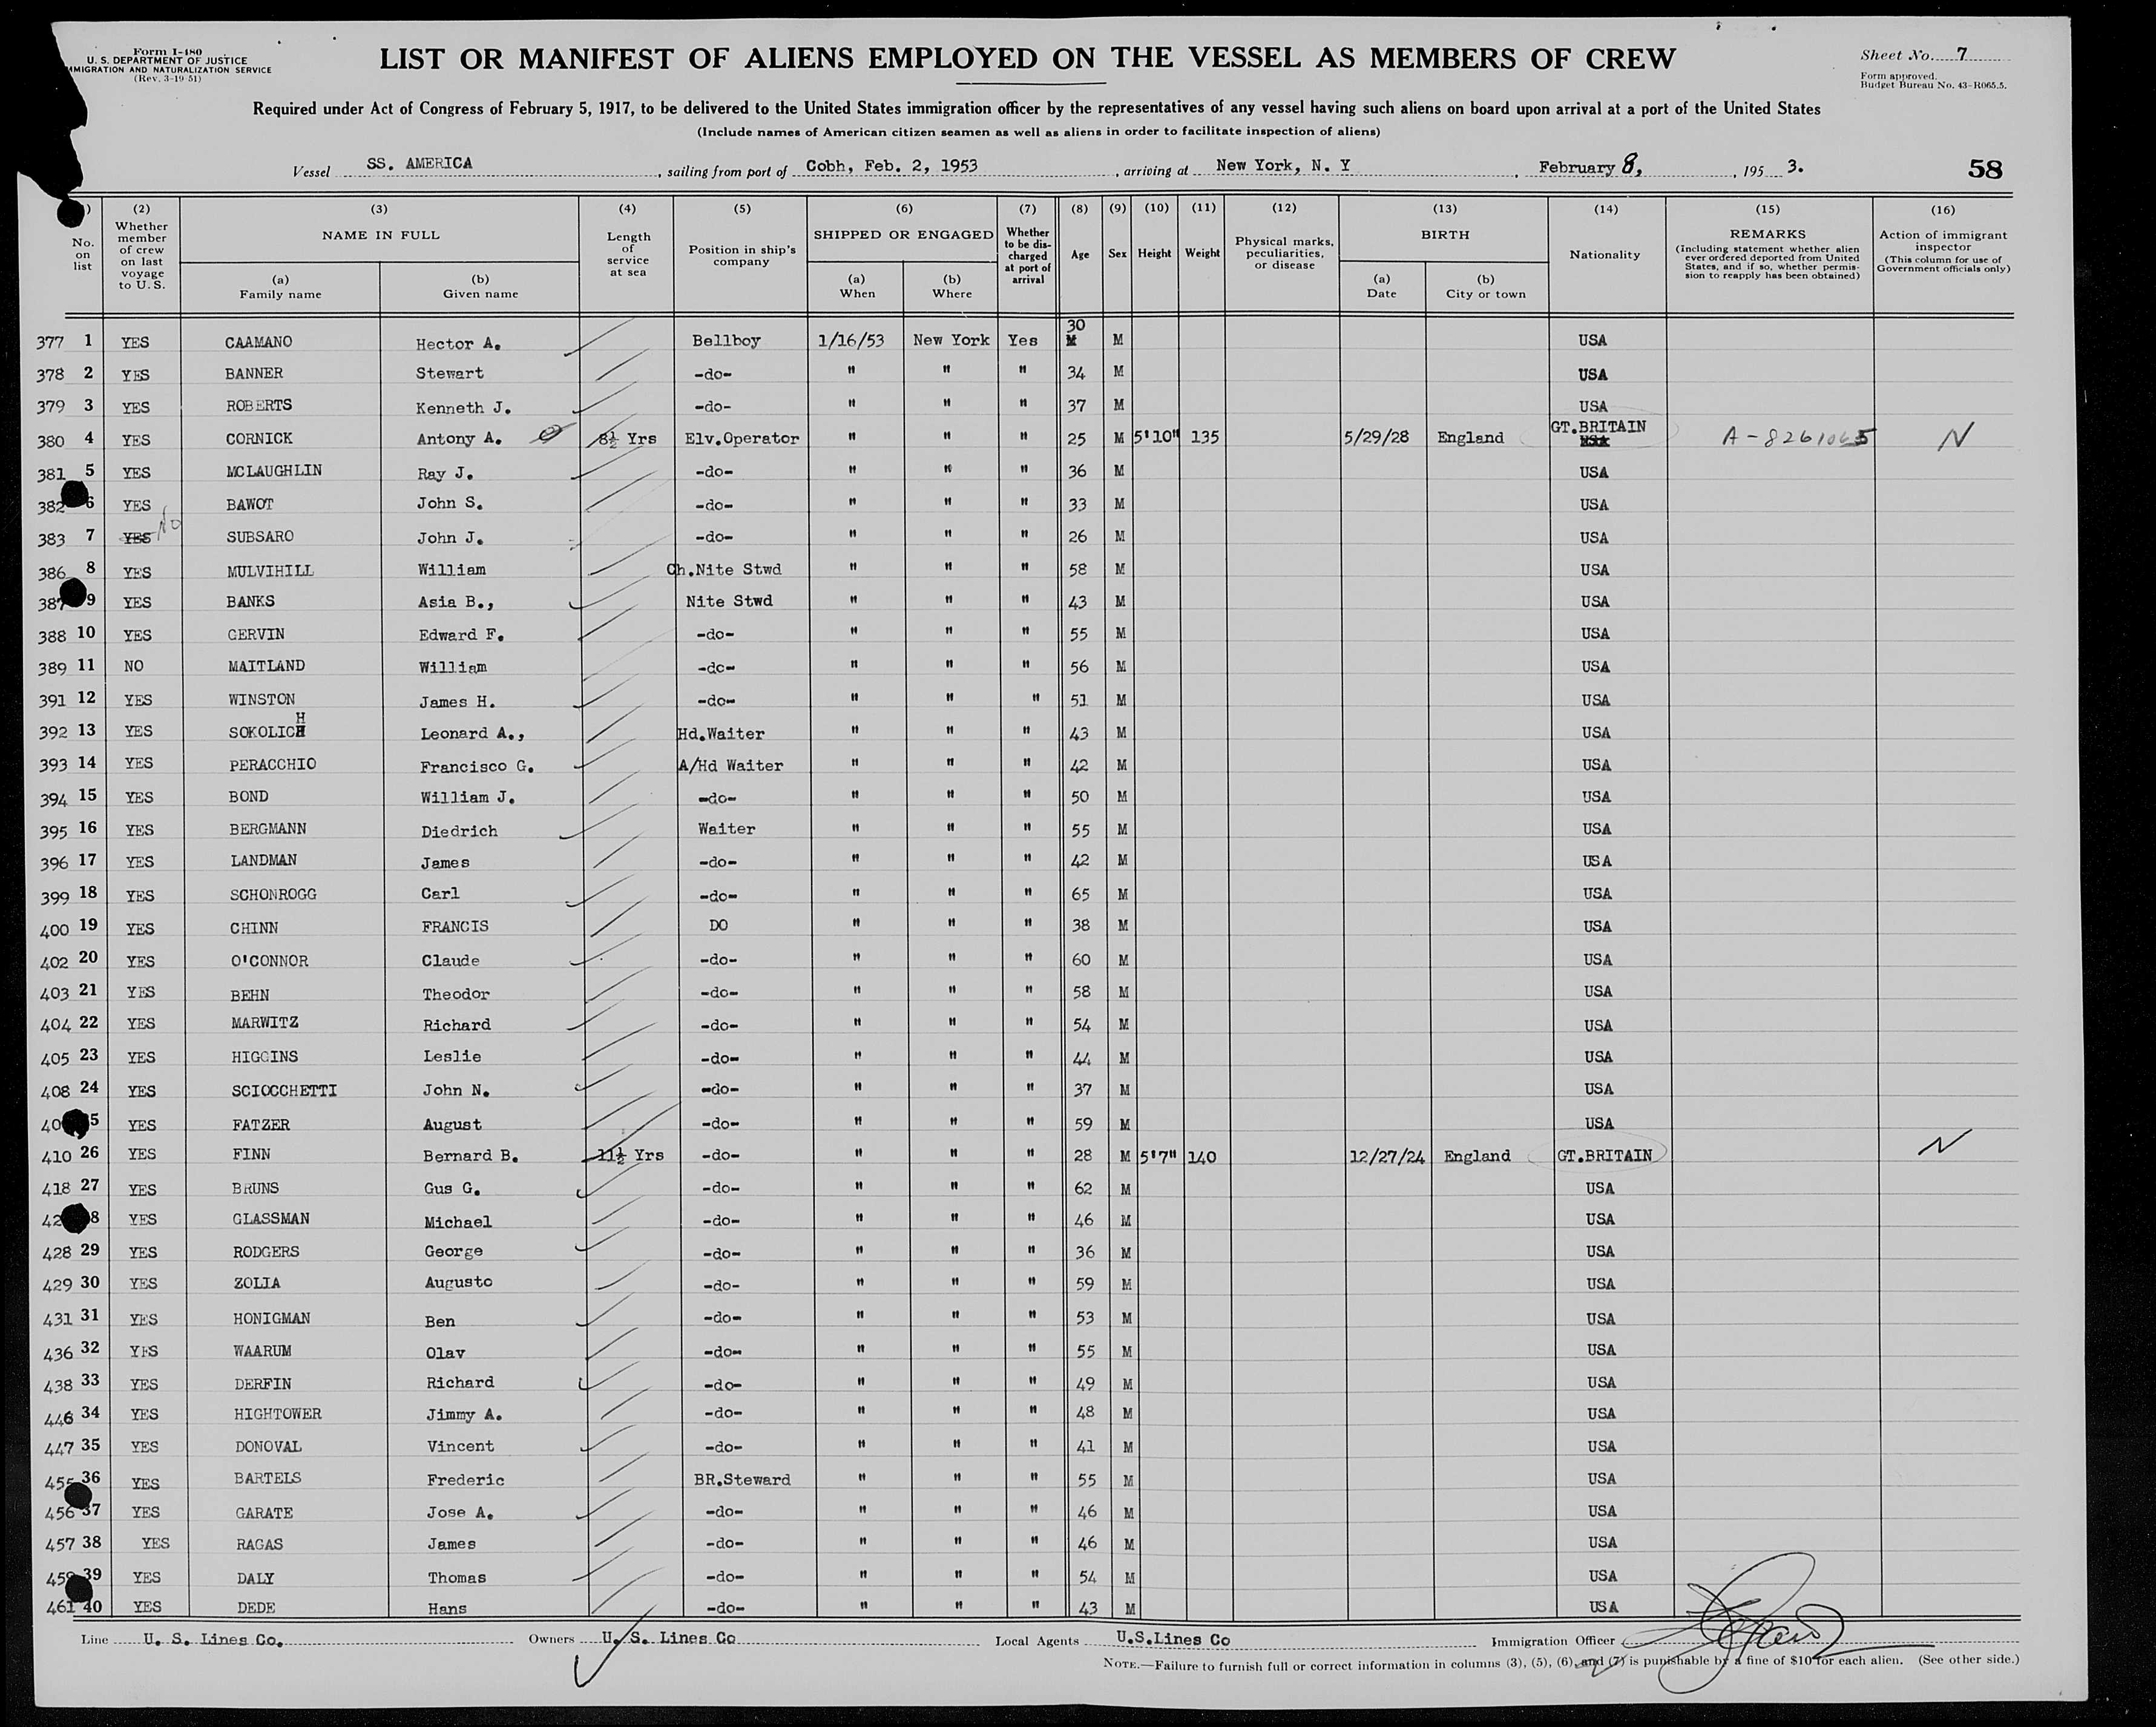 Form I-480
U. S. DEPARTMENT OF JUSTICE
MMIGRATION AND NATURALIZATION SERVICE
(Rev. 3-19-51)
LIST OR MANIFEST OF ALIENS EMPLOYED ON THE VESSEL AS MEMBERS OF CREW
Sheet No. 7
Form approved.
Budget Bureau No. 43-R065.5.
Required under Act of Congress of February 5, 1917, to be delivered to the United States immigration officer by the representatives of any vessel having such aliens on board upon arrival at a port of the United States
(Include names of American citizen seamen as well as aliens in order to facilitate inspection of aliens)
Vessel SS. AMERICA, sailing from port of Cobh, Feb. 2, 1953, arriving at New York, N. Y, February 8, 195 3. 58
) No. on list
(2) Whether member of crew on last voyage to U. S.
(3) NAME IN FULL (a) Family name (b) Given name
(4) Length of service at sea
(5) Position in ship's company
(6) SHIPPED OR ENGAGED (a) When (b) Where
(7) Whether to be discharged at port of arrival
(8) Age
(9) Sex
(10) Height
(11) Weight
(12) Physical marks, peculiarities, or disease
(13) BIRTH (a) Date (b) City or town
(14) Nationality
(15) REMARKS (Including statement whether alien ever ordered deported from United States, and if so, whether permission to reapply has been obtained)
(16) Action of immigrant inspector (This column for use of Government officials only)
377 1 YES CAAMANO Hector A. Bellboy 1/16/53 New York Yes 30 M USA
378 2 YES BANNER Stewart -do- " " " 34 M USA
379 3 YES ROBERTS Kenneth J. -do- " " " 37 M USA
380 4 YES CORNICK Antony A. 8½ Yrs Elv.Operator " " " 25 M 5'10" 135 5/29/28 England GT.BRITAIN USA A-8261065 N
381 5 YES MCLAUGHLIN Ray J. -do- " " " 36 M USA
382 6 YES BAWOT John S. -do- " " " 33 M USA
383 7 YES No SUBSARO John J. -do- " " " 26 M USA
386 8 YES MULVIHILL William Ch.Nite Stwd " " " 58 M USA
387 9 YES BANKS Asia B., Nite Stwd " " " 43 M USA
388 10 YES GERVIN Edward F. -do- " " " 55 M USA
389 11 NO MAITLAND William -do- " " " 56 M USA
391 12 YES WINSTON James H. -do- " " " 51 M USA
392 13 YES SOKOLICH Leonard A., Hd.Waiter " " " 43 M USA
393 14 YES PERACCHIO Francisco G. A/Hd Waiter " " " 42 M USA
394 15 YES BOND William J. -do- " " " 50 M USA
395 16 YES BERGMANN Diedrich Waiter " " " 55 M USA
396 17 YES LANDMAN James -do- " " " 42 M USA
399 18 YES SCHONROGG Carl -do- " " " 65 M USA
400 19 YES CHINN FRANCIS DO " " " 38 M USA
402 20 YES O'CONNOR Claude -do- " " " 60 M USA
403 21 YES BEHN Theodor -do- " " " 58 M USA
404 22 YES MARWITZ Richard -do- " " " 54 M USA
405 23 YES HIGGINS Leslie -do- " " " 44 M USA
408 24 YES SCIOCCHETTI John N. -do- " " " 37 M USA
40 5 YES FATZER August -do- " " " 59 M USA
410 26 YES FINN Bernard B. 11½ Yrs -do- " " " 28 M 5'7" 140 12/27/24 England GT.BRITAIN N
418 27 YES BRUNS Gus G. -do- " " " 62 M USA
42 8 YES GLASSMAN Michael -do- " " " 46 M USA
428 29 YES RODGERS George -do- " " " 36 M USA
429 30 YES ZOLIA Augusto -do- " " " 59 M USA
431 31 YES HONIGMAN Ben -do- " " " 53 M USA
436 32 YES WAARUM Olav -do- " " " 55 M USA
438 33 YES DERFIN Richard -do- " " " 49 M USA
446 34 YES HIGHTOWER Jimmy A. -do- " " " 48 M USA
447 35 YES DONOVAL Vincent -do- " " " 41 M USA
455 36 YES BARTELS Frederic BR.Steward " " " 55 M USA
456 37 YES GARATE Jose A. -do- " " " 46 M USA
457 38 YES RAGAS James -do- " " " 46 M USA
459 39 YES DALY Thomas -do- " " " 54 M USA
461 40 YES DEDE Hans -do- " " " 43 M USA
Line U. S. Lines Co. Owners U. S. Lines Co Local Agents U.S.Lines Co Immigration Officer
NOTE.—Failure to furnish full or correct information in columns (3), (5), (6), and (7) is punishable by a fine of $10 for each alien. (See other side.)